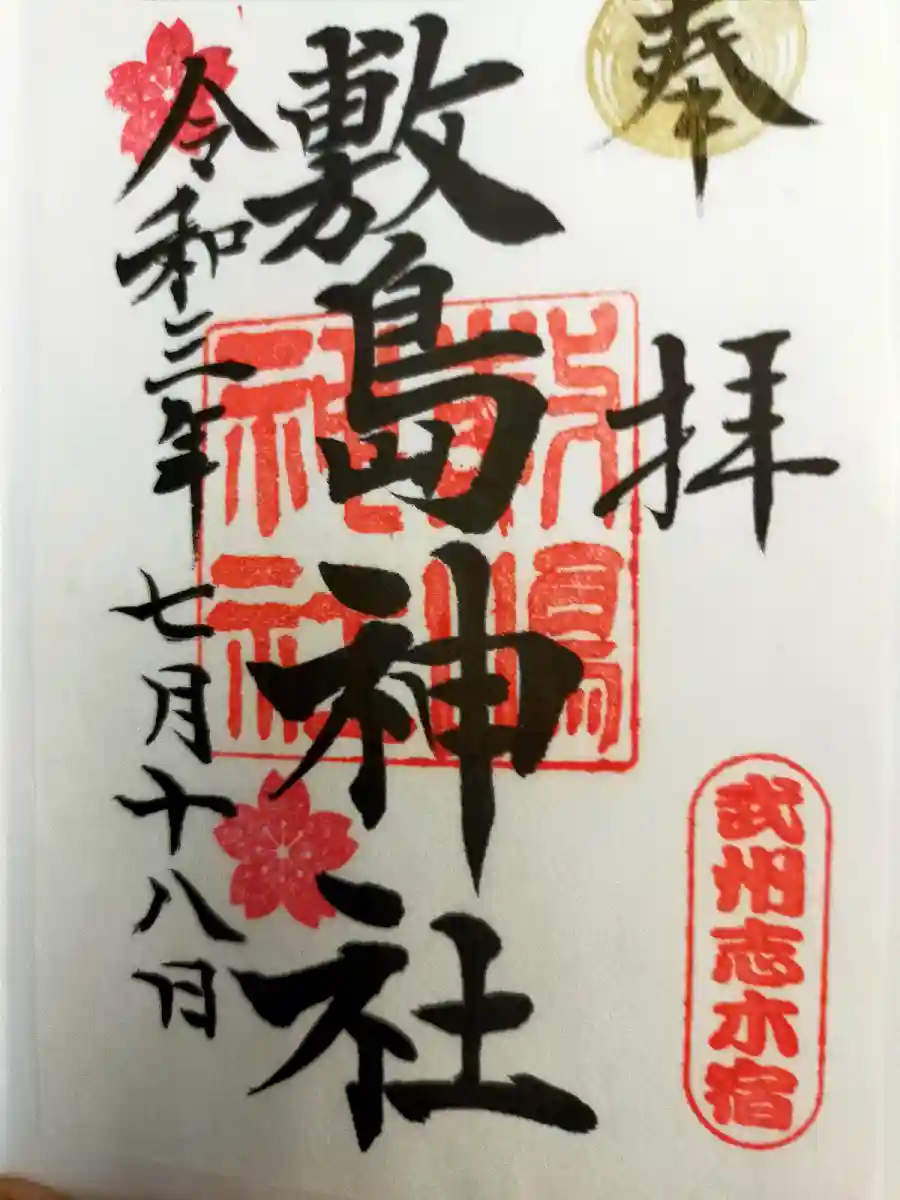 奉拝
武州志木宿
敷島神社
令和三年七月十八日